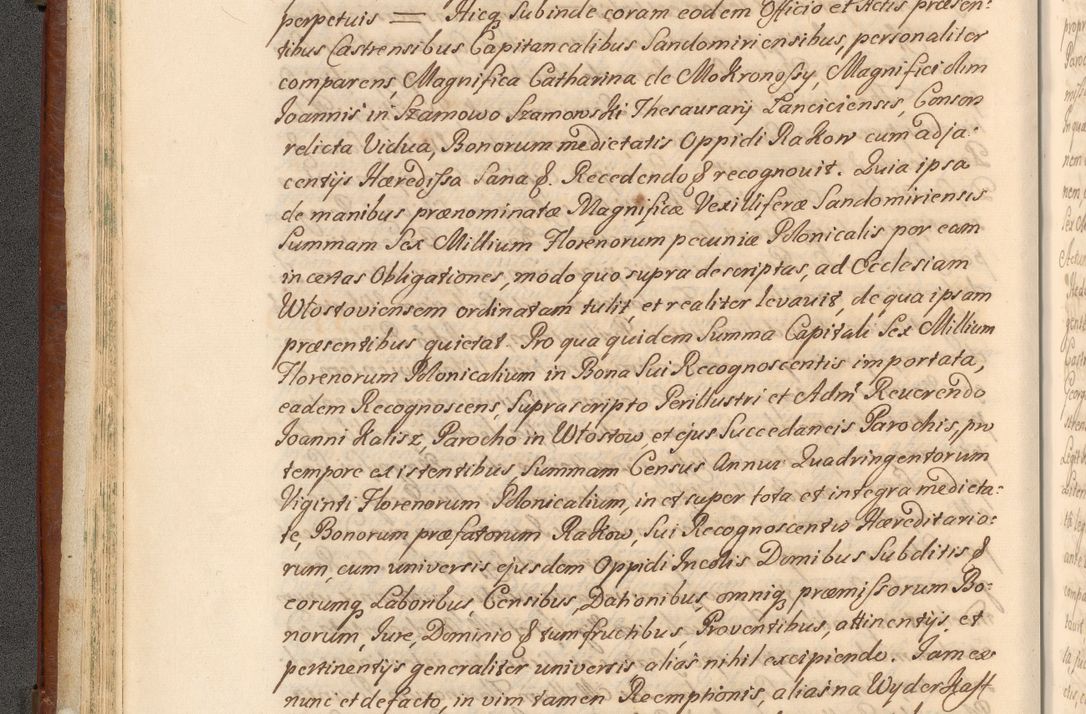 perpetuis = Hicq Subinde coram eodem Officio et Actis præsen:
tibus Castrensibus Capitanealibus Sandomiriensibus, personaliter
comparens Magnifica Catharina de Mokronoszy, Magnifici olim
Joannis in Szamowo Szamowski Thesaurarij Lanciciensis, Conson
relicta Vidua, Bonorum medietatis Oppidi Rakow cum adja:
centijs Hæredissa Sana &. Recedendo & recognovit. Quia ipsa
de manibus prænominatæ Magnificæ Vexilliferæ Sandomiriensis
Summam Sex Millium Florenorum pecuniæ Polonicalis per eam
in certas Obligationes, modo quo supra descriptas, ad Ecclesiam
Wtostoviensem ordinatam tulit, et realiter levavit, de qua ipsam
præsentibus quietat. Pro qua quidem Summa Capitali Sex Millium
Florenorum Polonicalium in Bona Sui Recognoscentis importata,
eadem Recognoscens, Suprascripto Perillustri et Adm Reverendo
Joanni Kalisz, Parocho in Wtostow, et ejus Succedaneis Parochis, pro
tempore existentibus Summam Census Annui Quadringentorum
Viginti Florenorum Polonicalium, in et super tota et integra medieta:
te, Bonorum præfatorum Rakow, Sui Recognoscentis Hæreditario:
rum, cum universis ejusdem Oppidi Incolis Domibus Subditis &
eorumq Laboribus, Censibus, Dationibus, omniq præmissorum Bo:
norum, Jure, Dominio & tum fructibus, Proventibus, attinentijs, et
pertinentijs generaliter universis alias nihil excipiendo. Jam ex
nunc et defacto, in vim tamen Reemptionis, alias na Wyderkaff